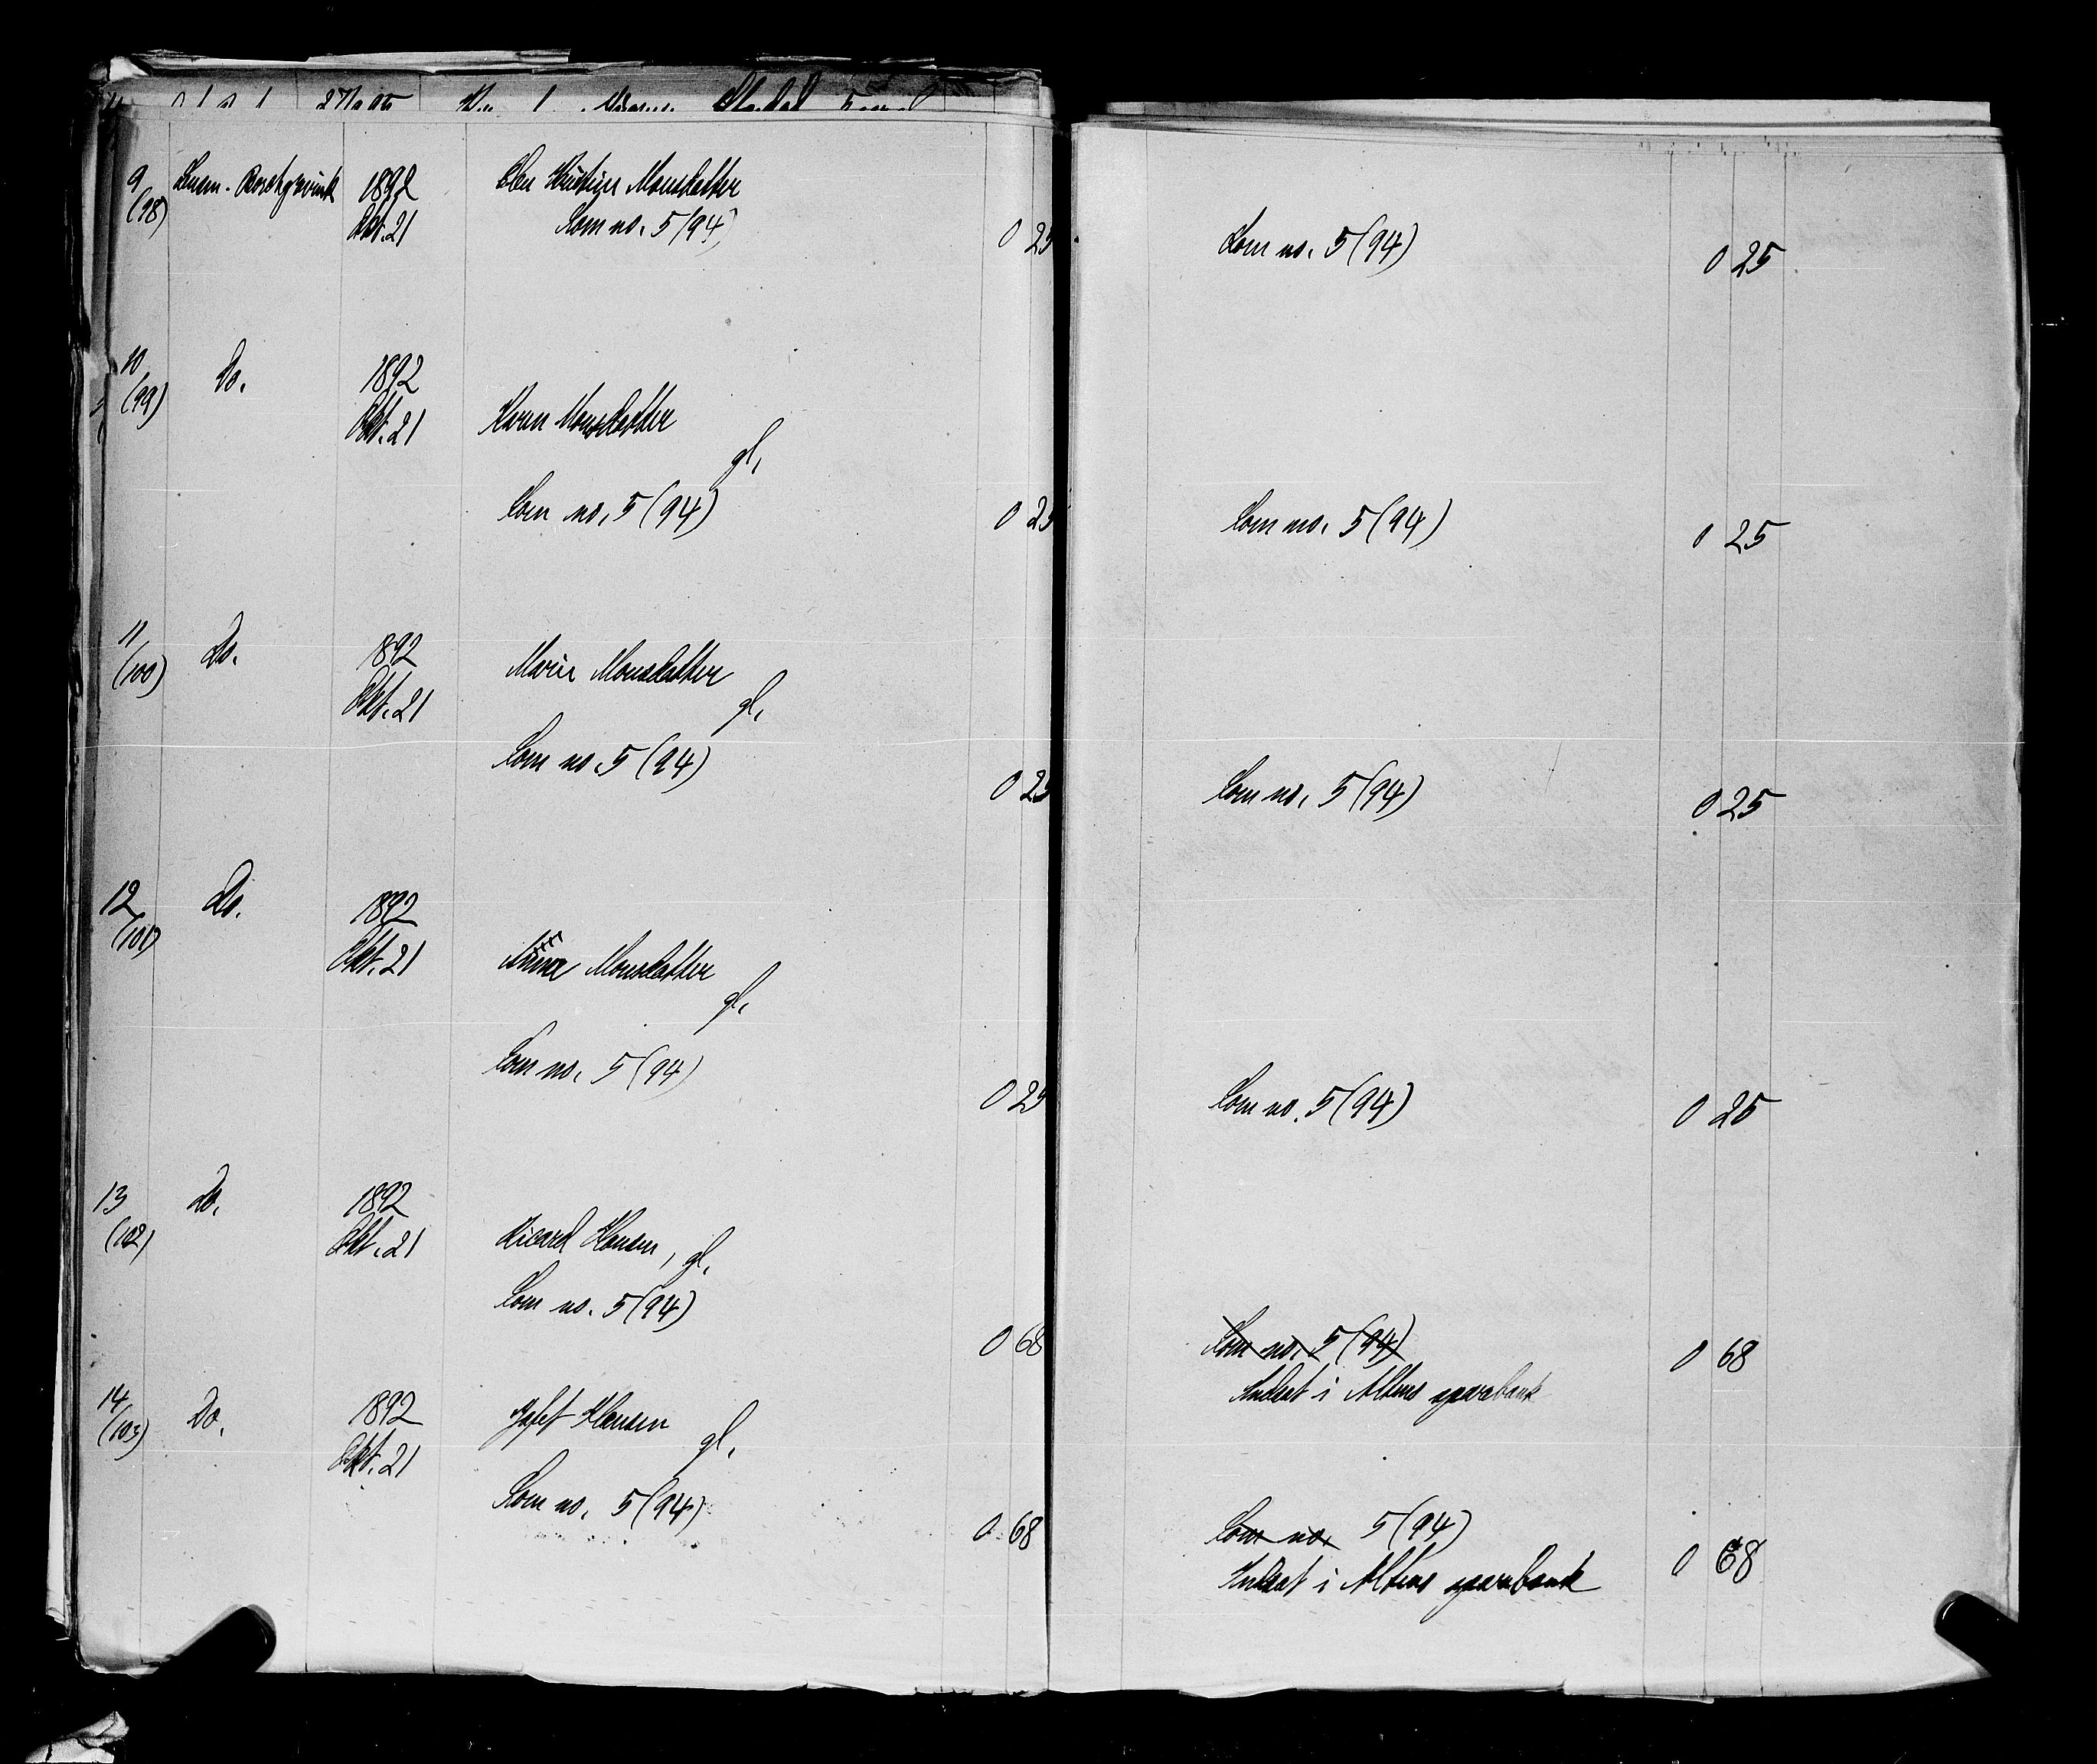 9 Lensm. 1892
(98) Okt. 21 Monsdatter
Som no. 5 (94) 0 25
Som no. 5 (94) 0 25
10 Do. 1892
(99) Okt. 21 Karen Monsdatter
gl.
Som no. 5 (94) 0 25
Som no. 5 (94) 0 25
11 Do. 1892
(100) Okt. 21 Marie Monsdatter
gl.
Som no. 5 (94) 0 25
Som no. 5 (94) 0 25
12 Do. 1892
(101) Okt. 21 Anna Monsdatter
gl.
Som no. 5 (94) 0 25
Som no. 5 (94) 0 25
13 Do. 1892
(102) Okt. 21 Ricard Hansen, gl.
Som no. 5 (94) 0 68
Som no. 5 (94) 0 68
Indsat i Altens sparebank
14 Do. 1892
(103) Okt. 21 Hansen
gl.
Som no. 5 (94) 0 68
Som no. 5 (94)
Indsat i Altens sparebank 0 68